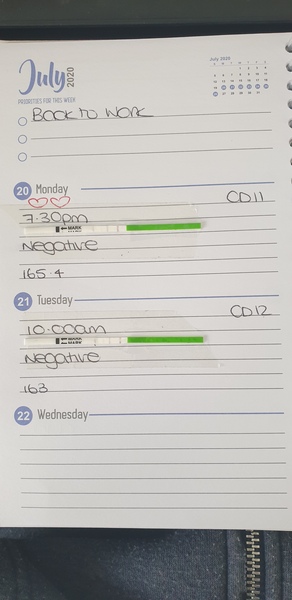 July 2020
July 2020
PRIORITIES FOR THIS WEEK
BOOK TO WORK
20 Monday
CD11
7.30pm
MARK
Negative
165.4
21 Tuesday
CD12
10.00am
MARK
Negative
163
22 Wednesday